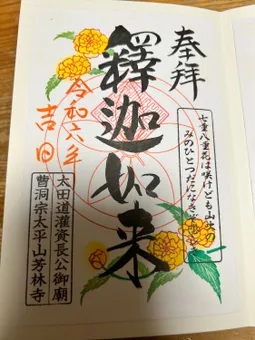 奉拝
七重八重花は咲けども山吹の
みのひとつだになきぞかなしき
釋迦如来
令和六年
吉日
太田道灌資長公御廟
曹洞宗太平山芳林寺